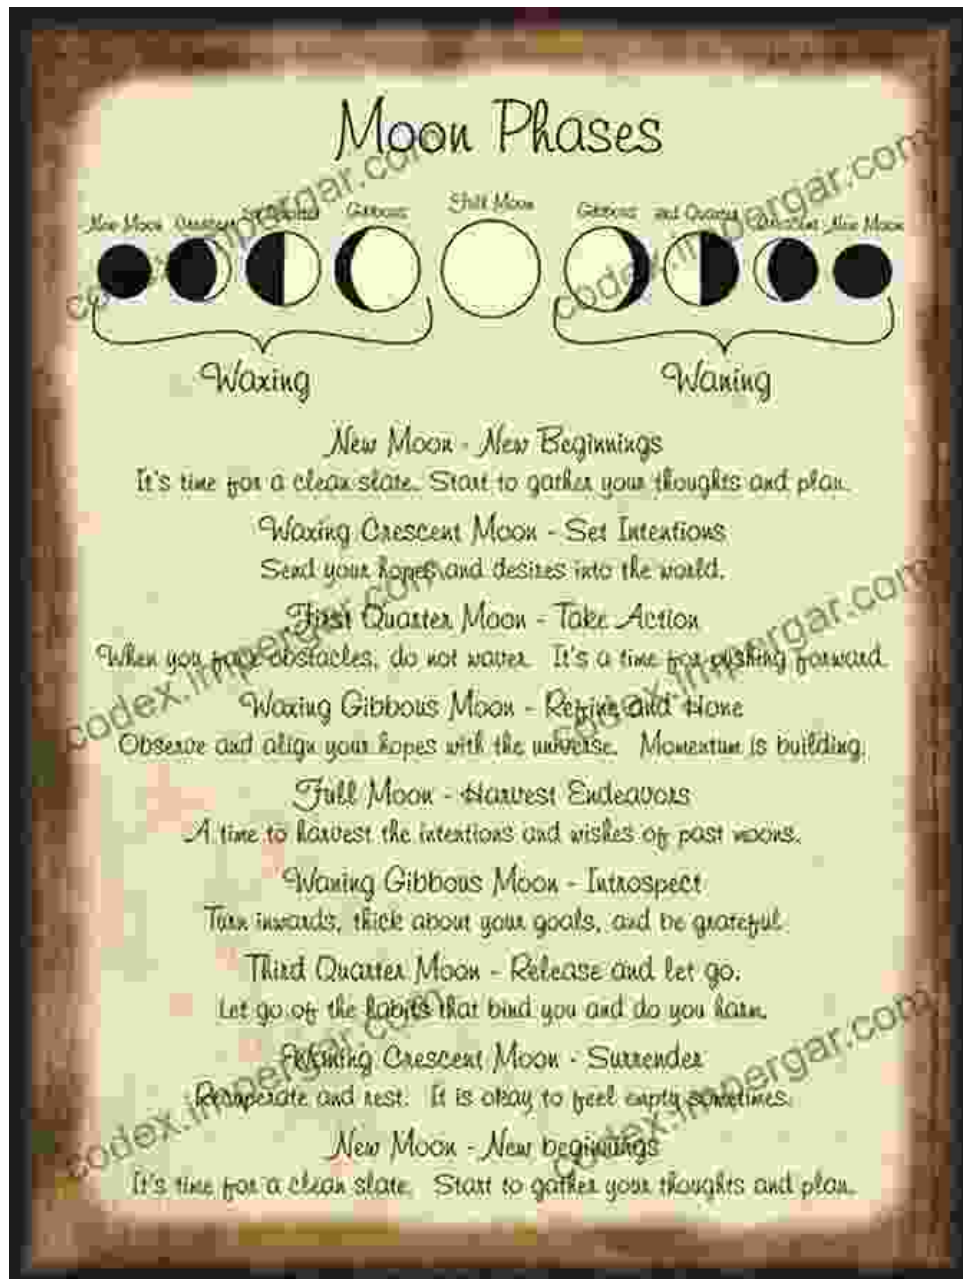 Moon Phases
New Moon Crescent 1st Quarter Gibbous Full Moon Gibbous 3rd Quarter Crescent New Moon
Waxing Waning
New Moon - New Beginnings
It's time for a clean slate. Start to gather your thoughts and plan.
Waxing Crescent Moon - Set Intentions
Send your hopes and desires into the world.
First Quarter Moon - Take Action
When you face obstacles, do not waver. It's a time for pushing forward.
Waxing Gibbous Moon - Refine and Hone
Observe and align your hopes with the universe. Momentum is building.
Full Moon - Harvest Endeavors
A time to harvest the intentions and wishes of past moons.
Waning Gibbous Moon - Introspect
Turn inwards, thick about your goals, and be grateful.
Third Quarter Moon - Release and let go.
Let go of the habits that bind you and do you harm.
Waning Crescent Moon - Surrender
Recuperate and rest. It is okay to feel empty sometimes.
New Moon - New beginnings
It's time for a clean slate. Start to gather your thoughts and plan.
codex.impergar.com
codex.impergar.com
codex.impergar.com
codex.impergar.com
codex.impergar.com
codex.impergar.com